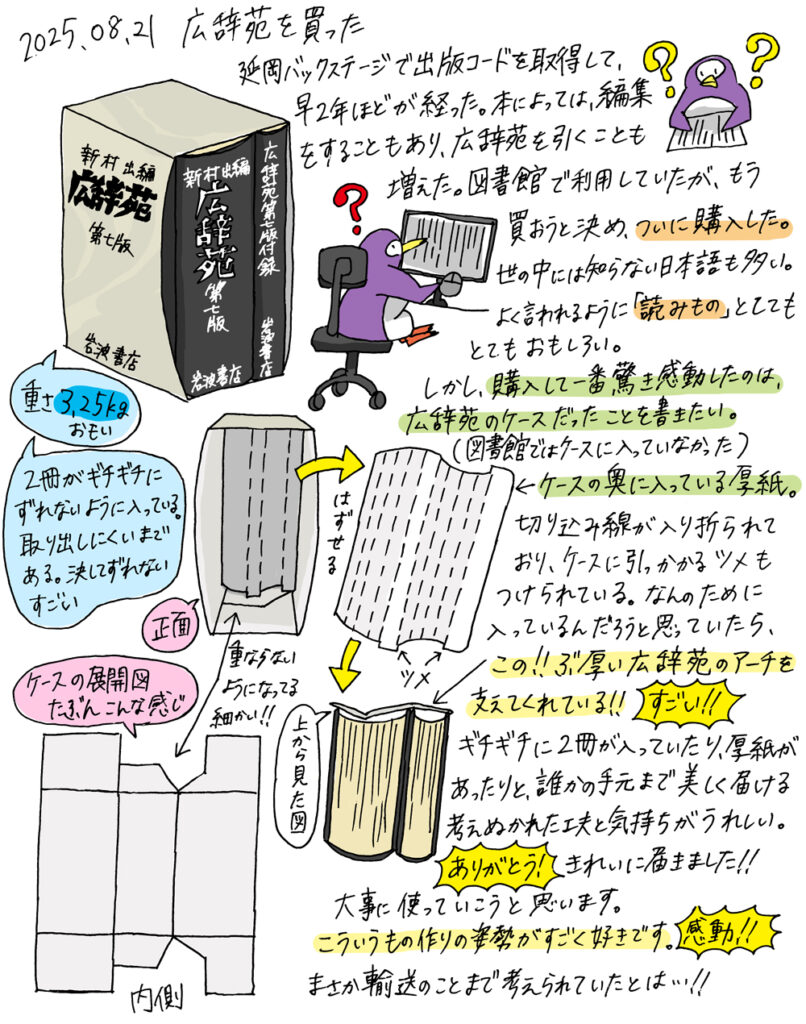 2025.08.21 広辞苑を買った
延岡バックステージで出版コードを取得して、
早2年ほどが経った。本によっては、編集
をすることもあり、広辞苑を引くことも
増えた。図書館で利用していたが、もう
買おうと決め、ついに購入した。
世の中には知らない日本語も多い。
よく言われるように「読みもの」としても
とてもおもしろい。
しかし、購入して一番驚き感動したのは、
広辞苑のケースだったことを書きたい。
(図書館ではケースに入っていなかった)
新村出編
広辞苑
第七版
岩波書店
新村出編
広辞苑
第七版
岩波書店
広辞苑第七版付録
岩波書店
?
?
?
重さ3.25kg
おもい
2冊がギチギチに
ずれないように入っている。
取り出しにくいまで
ある。決してずれない
すごい
正面
はずせる
←ケースの奥に入っている厚紙。
切り込み線が入り折られて
おり、ケースに引っかかるツメも
つけられている。なんのために
入っているんだろうと思っていたら、
この!!ぶ厚い広辞苑のアーチを
支えてくれている!! すごい!!
ツメ
重ならない
ようになってる
細かい!!
ケースの展開図
たぶんこんな感じ
上から見た図
ギチギチに2冊が入っていたり、厚紙が
あったりと、誰かの手元まで美しく届ける
考えぬかれた工夫と気持ちがうれしい。
ありがとう! きれいに届きました!!
大事に使っていこうと思います。
こういうもの作りの姿勢がすごく好きです。感動!!
まさか輸送のことまで考えられていたとは…!!
内側